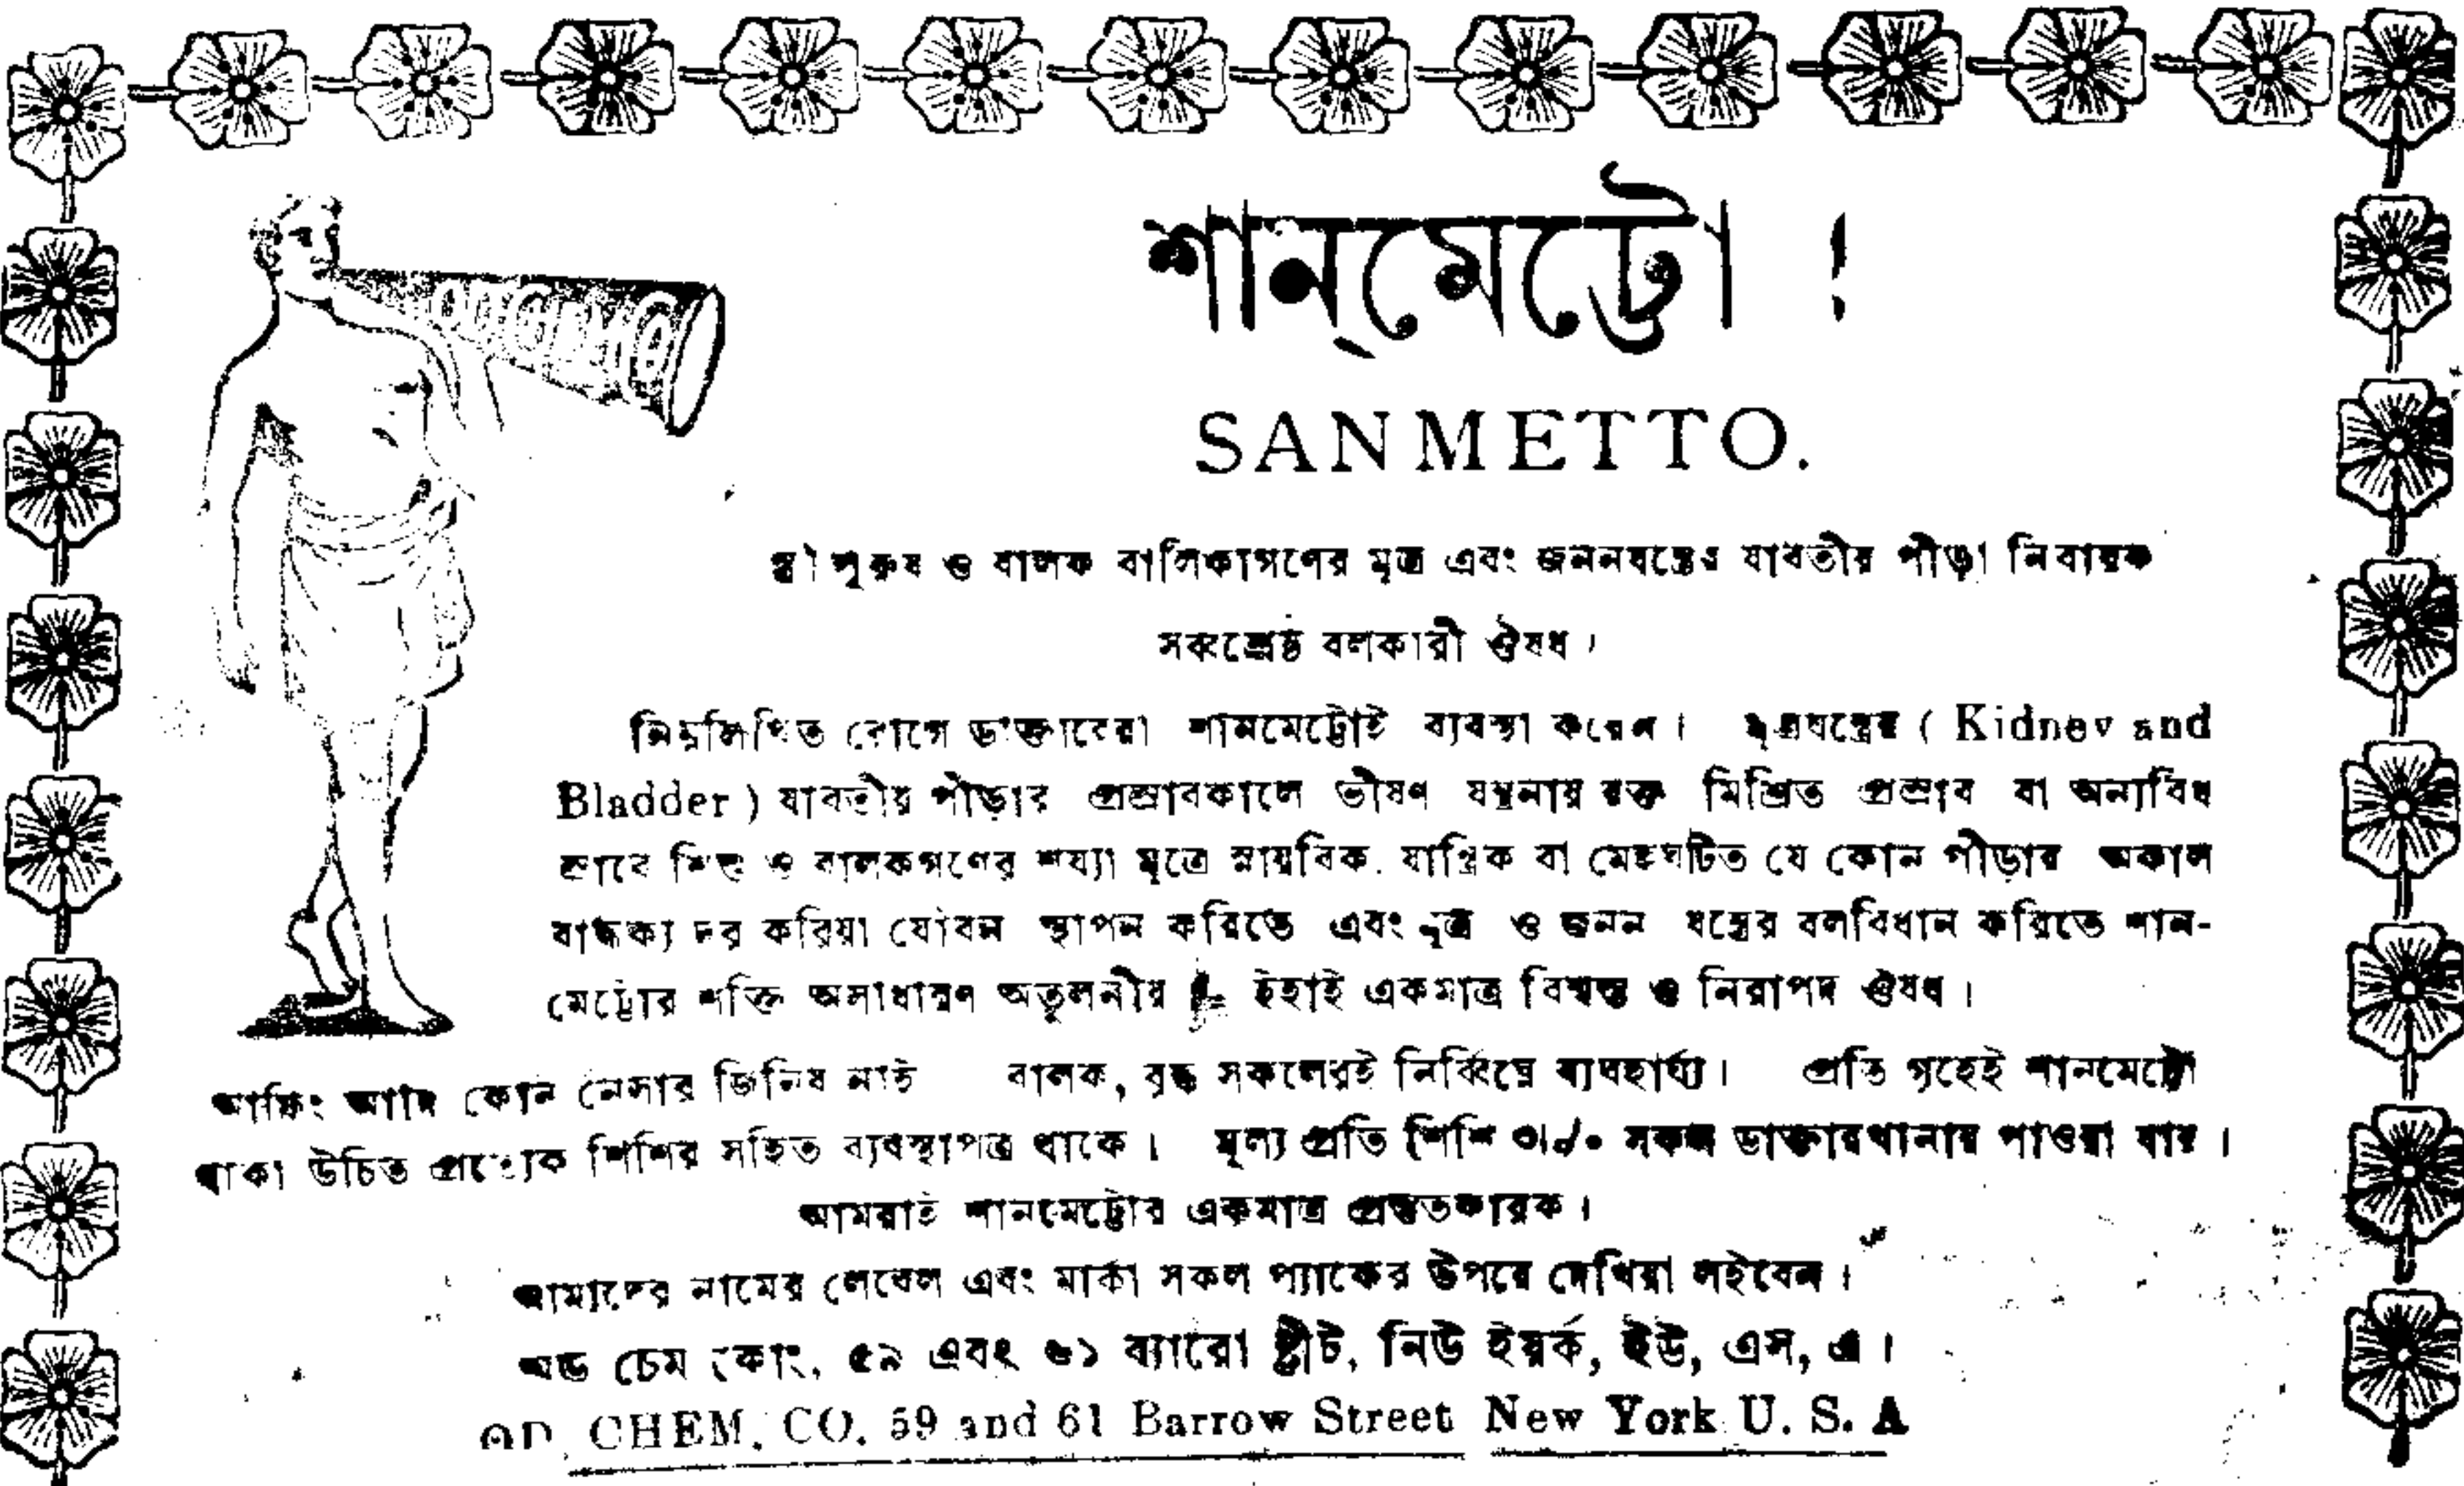 শান্‌মেট্টো !
SANMETTO.
স্ত্রী পুরুষ ও বালক বালিকাগণের মূত্র এবং জননযন্ত্রের যাবতীয় পীড়া নিবারক
সর্ব্বশ্রেষ্ঠ বলকারী ঔষধ।
নিম্নলিখিত রোগে ডাক্তারেরা শানমেট্টোই ব্যবস্থা করেন। মূত্রযন্ত্রের ( Kidney and
Bladder ) যাবতীয় পীড়ার প্রস্রাবকালে ভীষণ যন্ত্রনায় রক্ত মিশ্রিত প্রস্রাব বা অন্যবিধ
স্রাবে শিশু ও বালকগণের শয্যা মূত্রে স্নায়বিক. যান্ত্রিক বা মেহঘটিত যে কোন পীড়ার অকাল
বার্দ্ধক্য দূর করিয়া যৌবন স্থাপন করিতে এবং মূত্র ও জনন যন্ত্রের বলবিধান করিতে শান-
মেট্টোর শক্তি অসাধারণ অতুলনীয় ইহাই একমাত্র বিশ্বস্ত ও নিরাপদ ঔষধ।
আফিং আদি কোন নেসার জিনিষ নাই বালক, বৃদ্ধ সকলেরই নির্ব্বিঘ্নে ব্যবহার্য্য। প্রতি গৃহেই শানমেট্টো
থাকা উচিত প্রত্যেক শিশির সহিত ব্যবস্থাপত্র থাকে। মূল্য প্রতি শিশি ৩৷৵০ সকল ডাক্তারখানায় পাওয়া যায়।
আমরাই শানমেট্টোর একমাত্র প্রস্তুতকারক।
আমাদের নামের লেবেল এবং মার্কা সকল প্যাকের উপরে দেখিয়া লইবেন।
অড চেম কোং, ৫৯ এবং ৬১ ব্যারো ষ্ট্রীট, নিউ ইয়র্ক, ইউ, এস, এ।
OD. CHEM. CO. 59 and 61 Barrow Street New York U. S. A